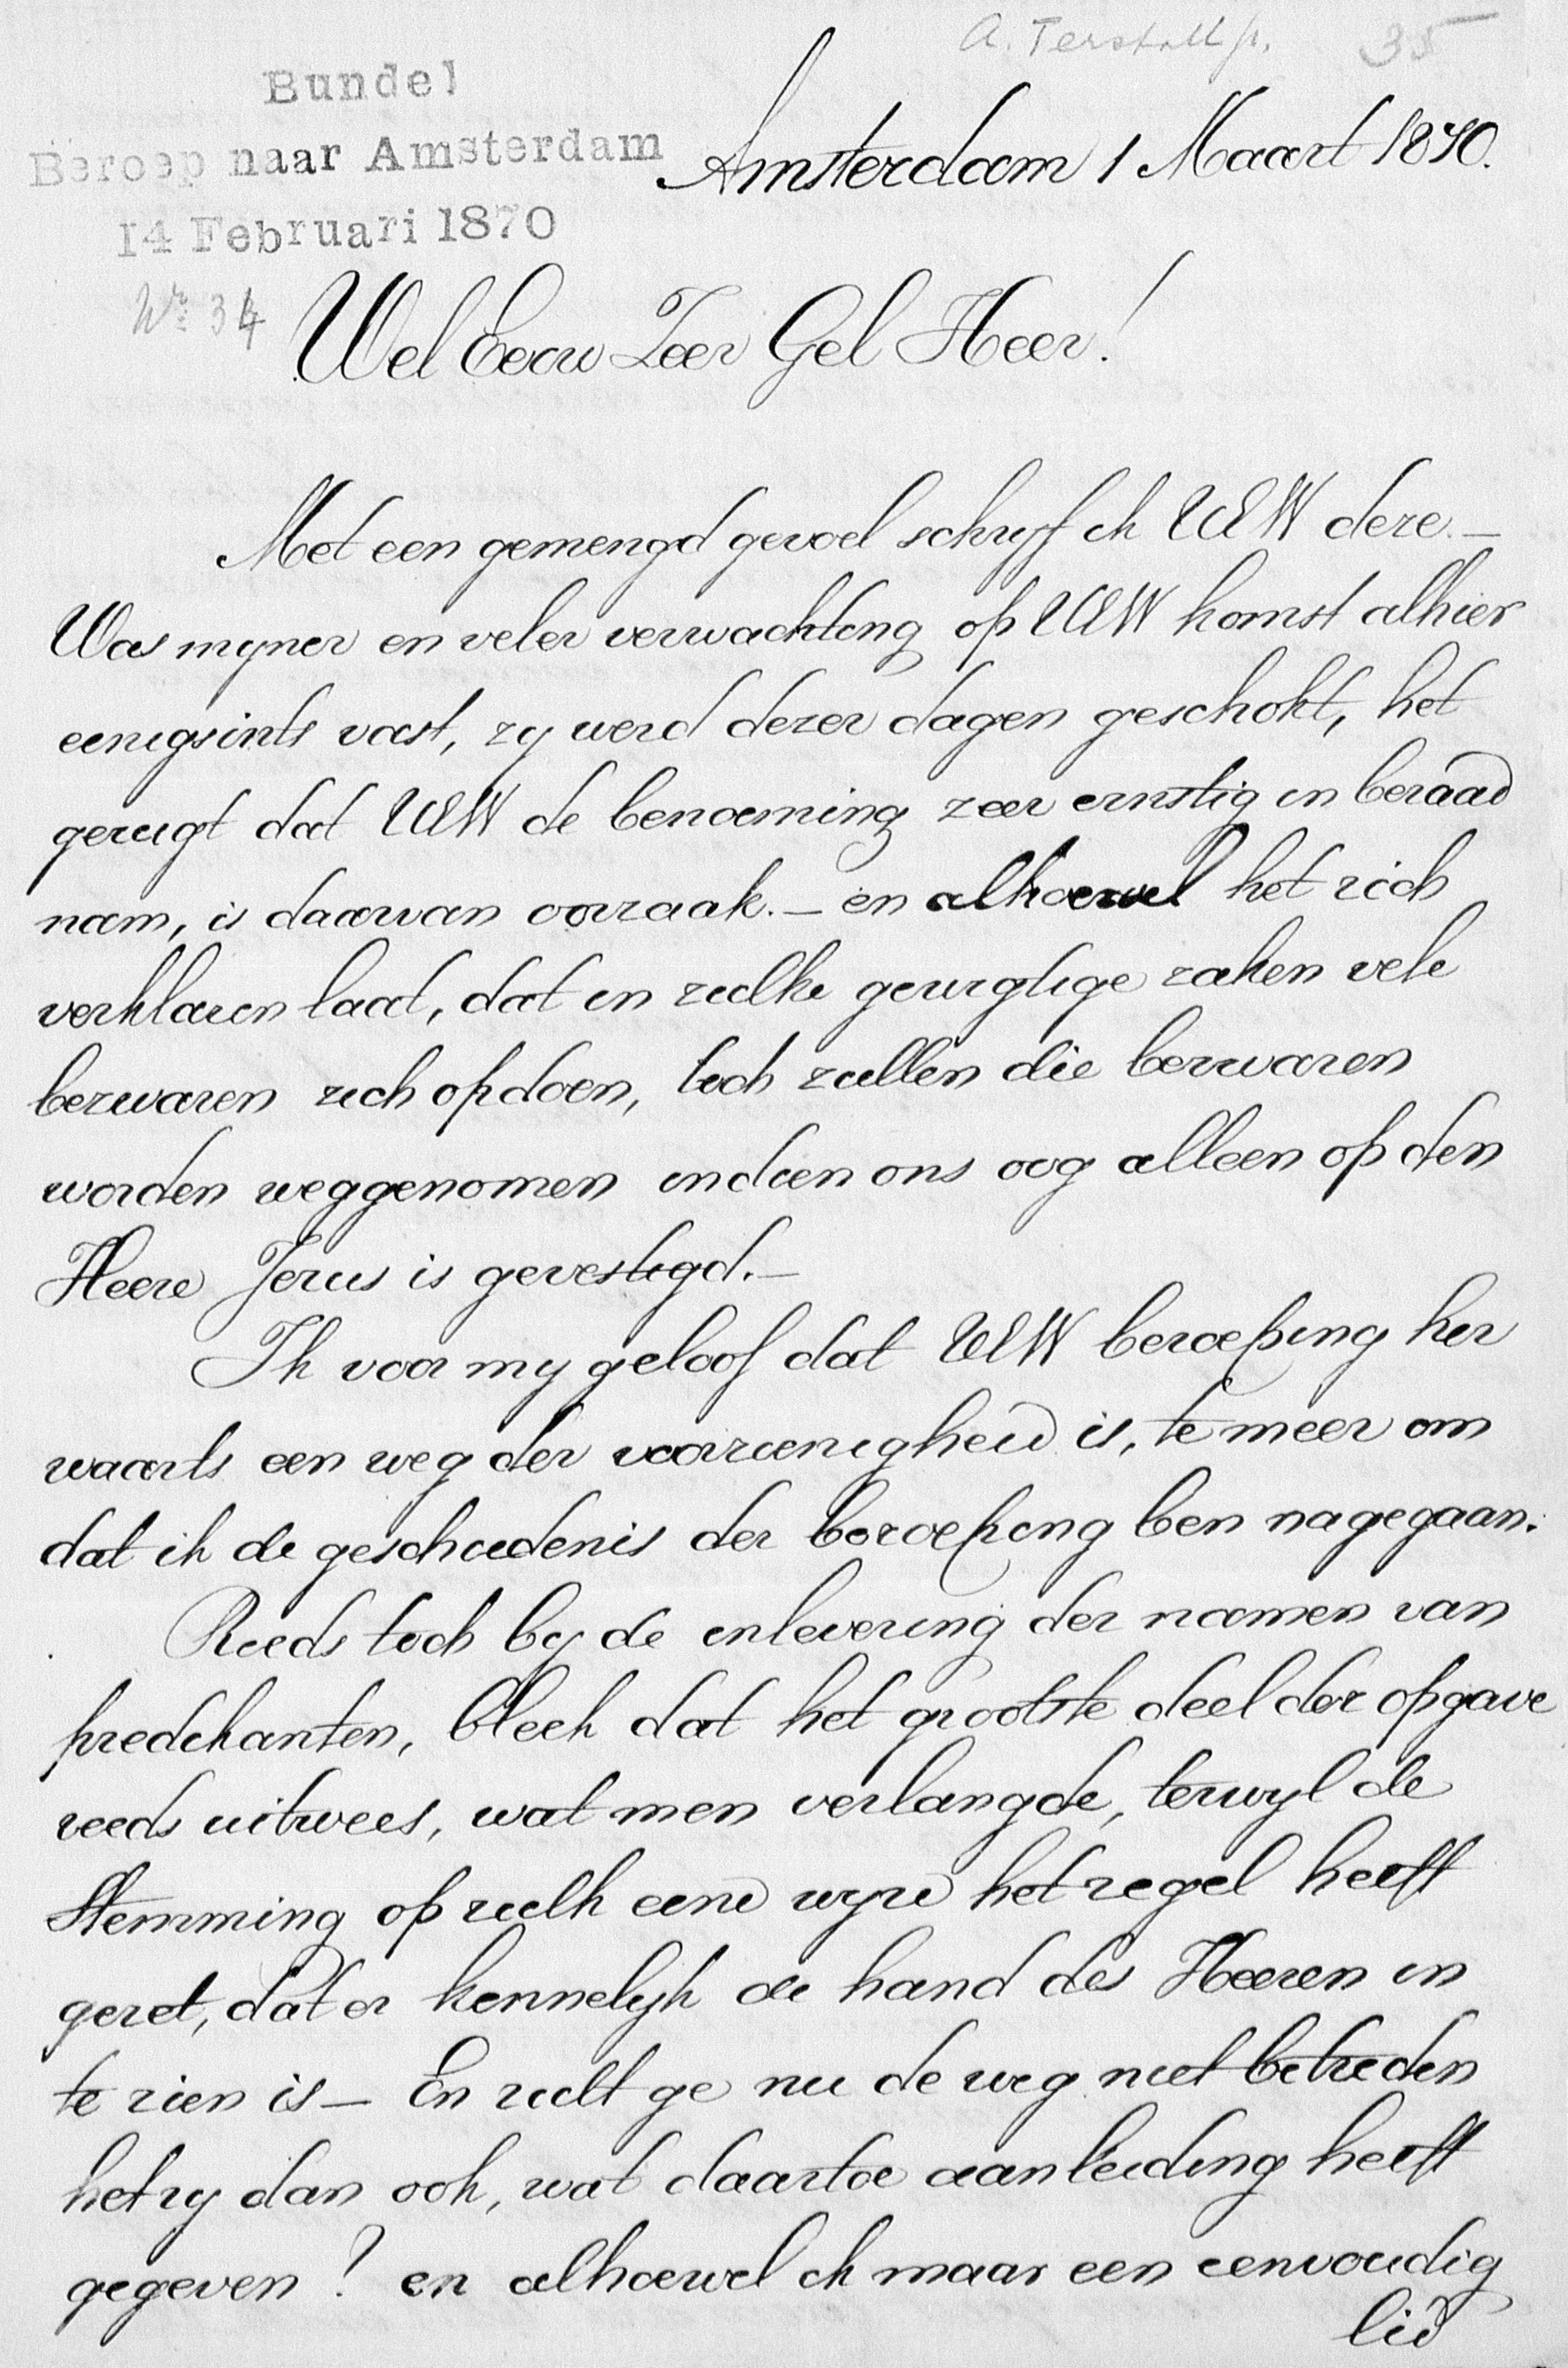 A. Terstall p. 35
Bundel
Beroep naar Amsterdam
14 Februari 1870
No 34
Amsterdam 1 Maart 1870.
Wel Eeow Zeer Gel Heer!
Met een gemengd gevoel schryf ik UEW deze. —
Was myner en veler verwachting op UEW komst alhier
eenigsints vast, zy werd dezer dagen geschokt, het
gerugt dat UEW de benoeming zeer ernstig in beraad
nam, is daarvan oorzaak. — en alhoewel het zich
verklaren laat, dat in zulke gewigtige zaken vele
bezwaren zich opdoen, toch zullen die bezwaren
worden weggenomen indien ons oog alleen op den
Heere Jezus is gevestigd. —
Ik voor my geloof dat UEW beroeping her
waarts een weg der voorzienigheid is, te meer om
dat ik de geschiedenis der beroeping ben nagegaan.
Reeds toch by de inlevering der namen van
predikanten, bleek dat het grootste deel der opgave
reeds uitwees, wat men verlangde, terwyl de
Stemming op zulk eene wyze het zegel heeft
gezet, dat er kennelyk de hand des Heeren in
te zien is — En zult ge nu de weg niet betreden
het zy dan ook, wat daartoe aanleiding heeft
gegeven? en alhoewel ik maar een eenvoudig
lid